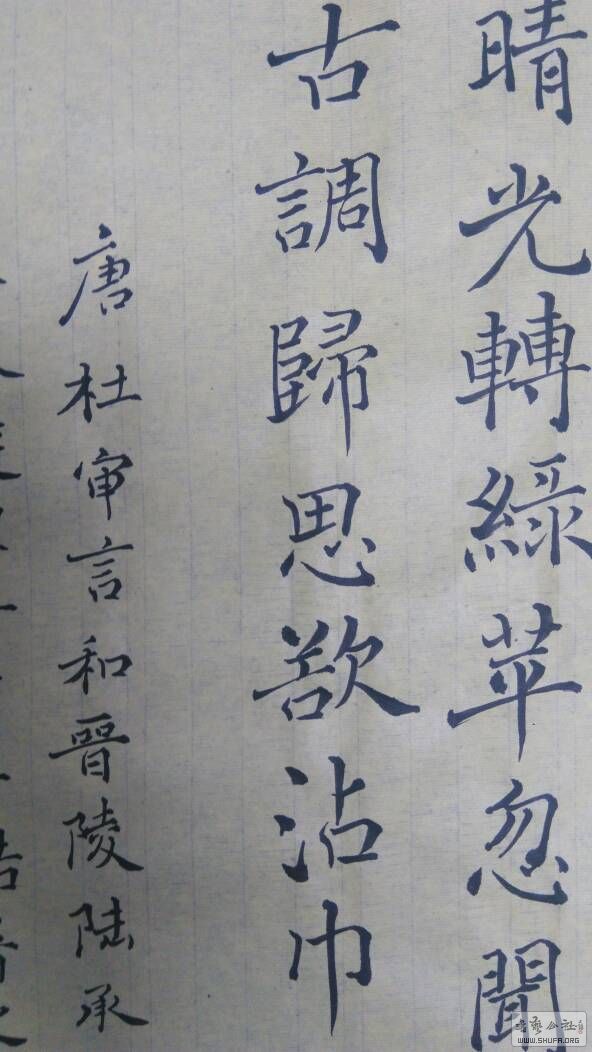 晴光轉綠苹忽聞
古調歸思欲沾巾
唐杜审言和晉陵陆承
书艺公社
WWW.SHUFA.ORG